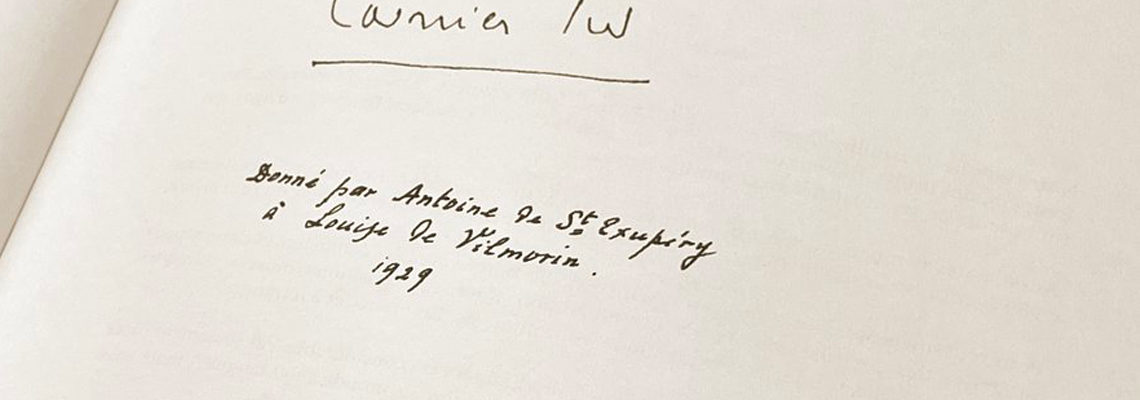 Courrier Sud
Donné par Antoine de St Exupéry
à Louise de Vilmorin.
1929